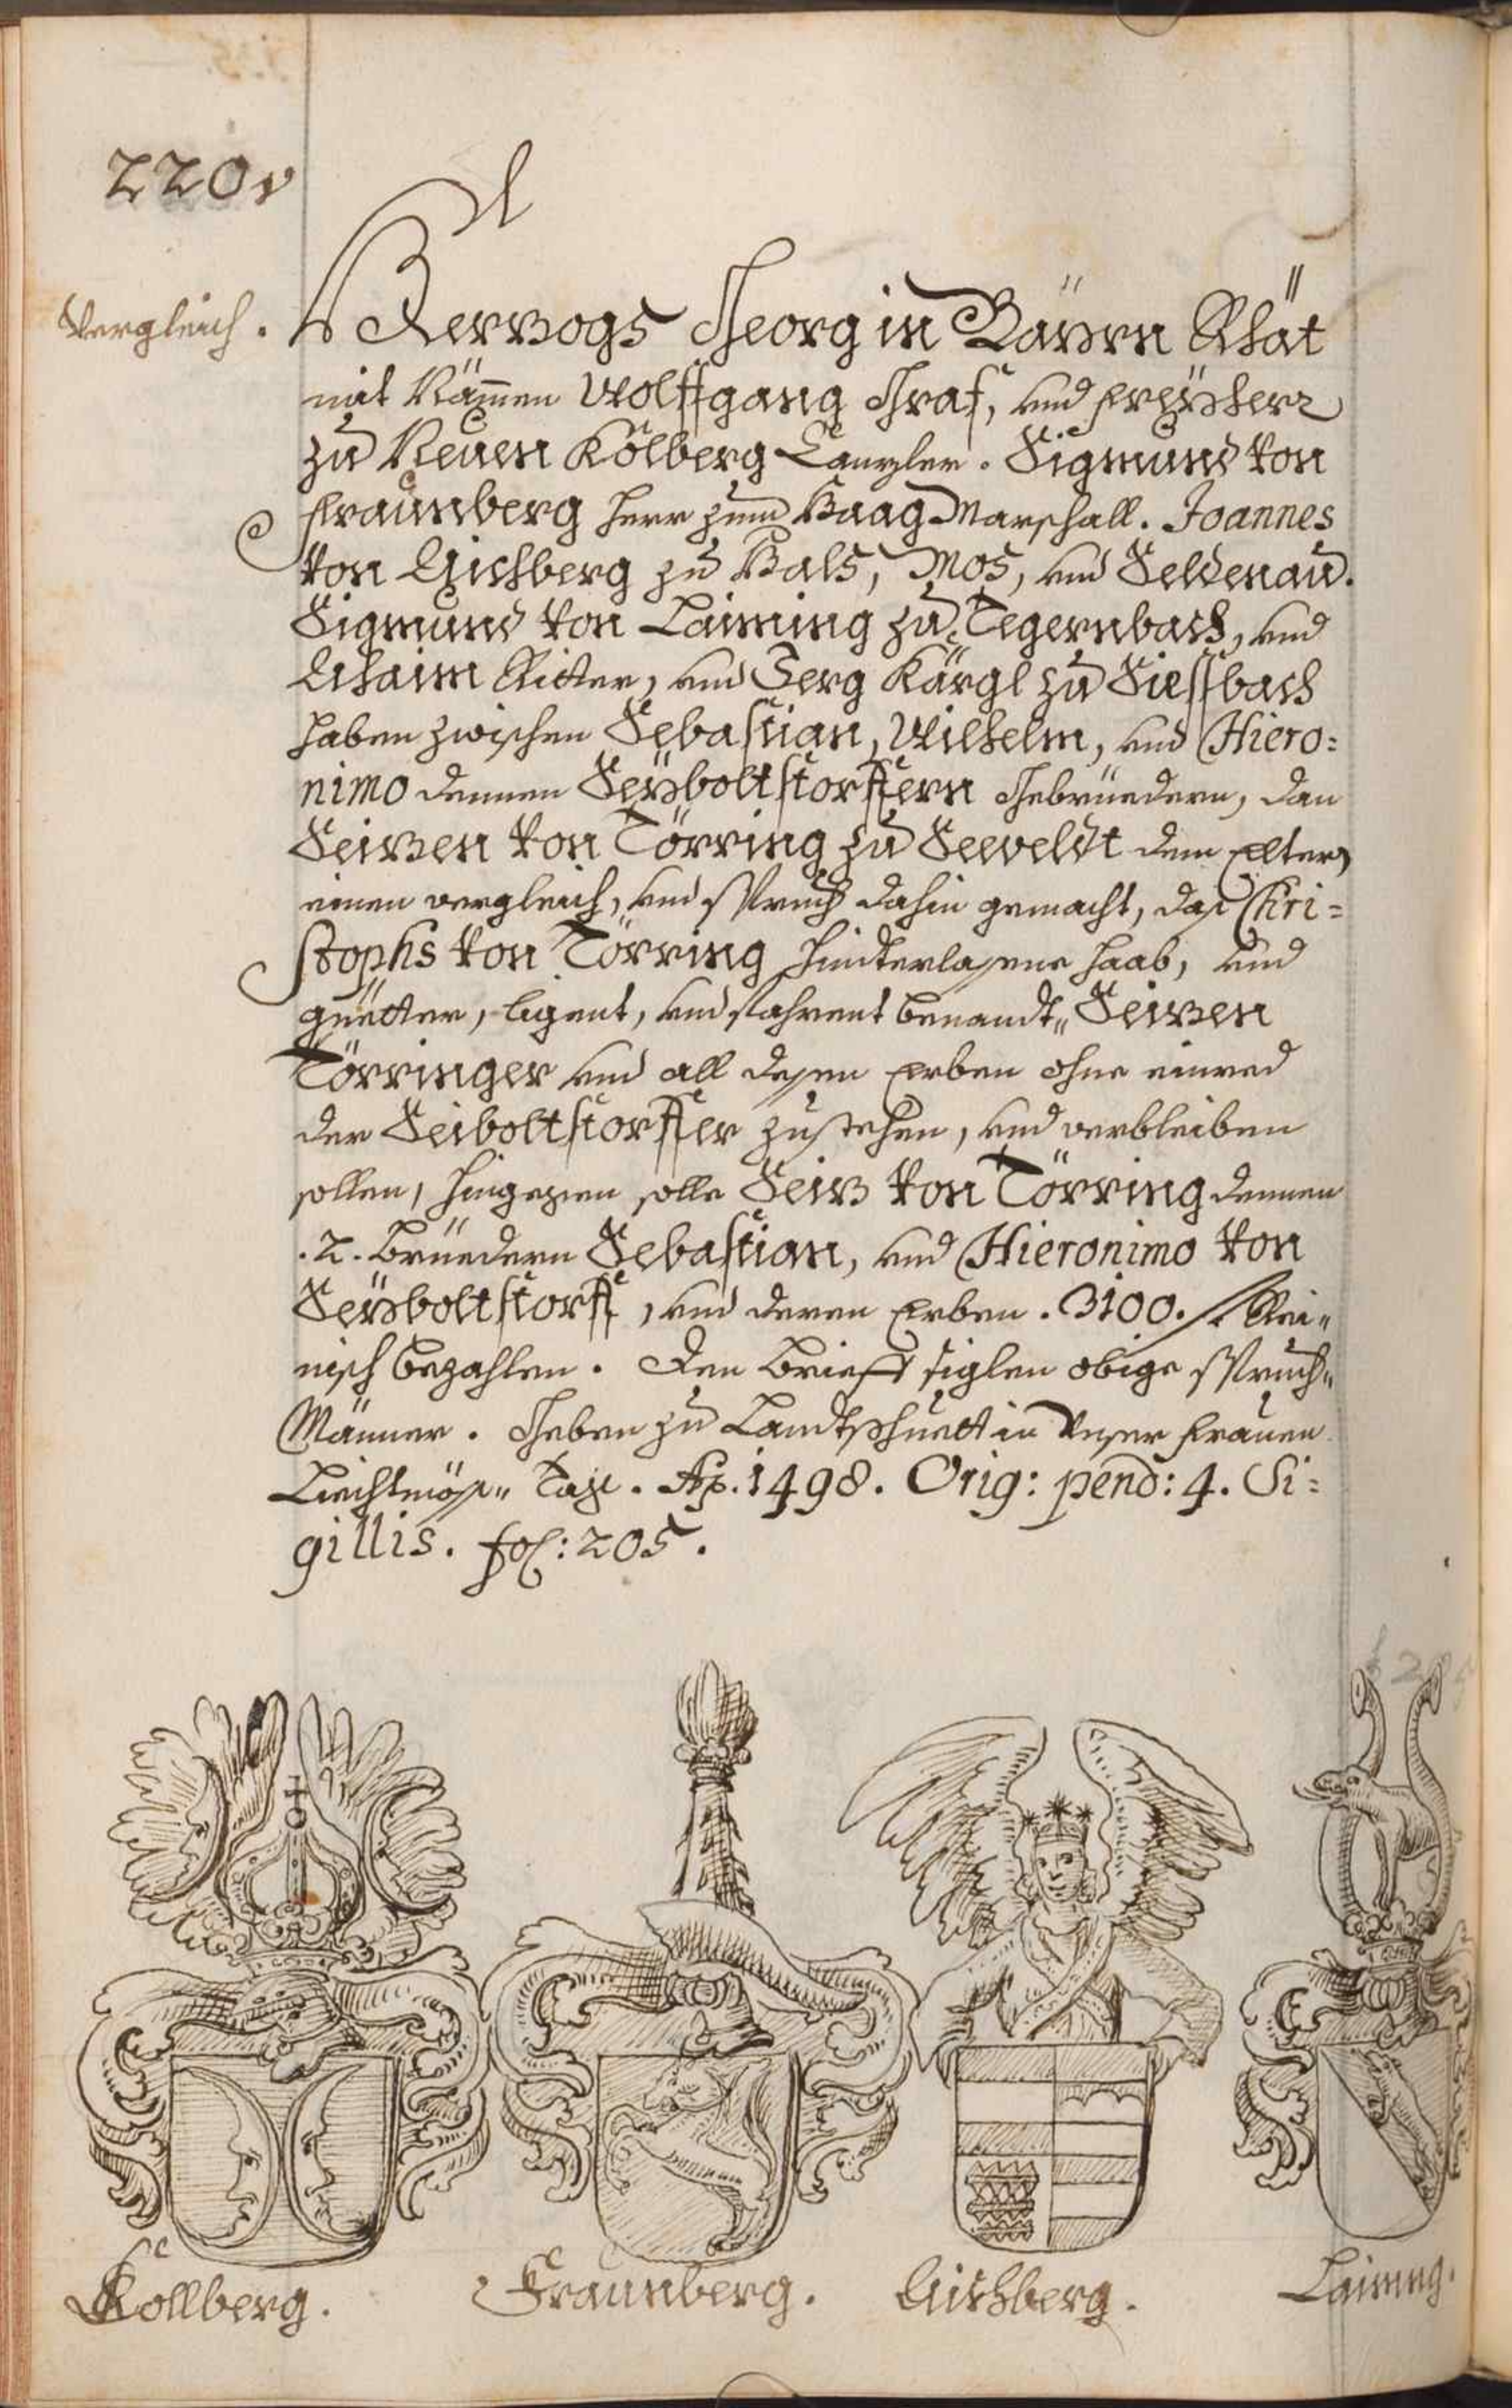 220v
Vergleich.
Herzogs Georg in Bayrn Rhät
mit Nämen Wolffgang Graf, und freÿherr
zu Neuen Kölberg Canzler. Sigmund von
fraunberg herr zum Haag Marschall. Joannes
von Aichberg zu Hals, Mos, und Seldenau.
Sigmund von Laiming zu Tegernbach, und
Ahaim Ritter, und Jerg Kärgl zu Siessbach
haben zwischen Sebastian, Wilhelm, und Hiero=
nimo dennen Seÿboltstorffern Gebrüedern, dan
Seizen von Törring zu Seeveldt dem Eltern
einen vergleich, und spruch dahin gemacht, das Chri=
stophs von Törring hinterlasene haab, und
güetter, ligent, und fahrent benandt" Seizen
Törringer und all desen Erben ohne einred
der Seiboltstorffer zustehen, und verbleiben
sollen, hingegen solle Seiz von Törring dennen
.2. Brüedern Sebastian, und Hieronimo von
Seÿboltstorff, und deren Erben .3100. f. Rei"
nisch bezahlen. Den Brieff siglen obige spruch"
Männer. Geben zu Landtshuett in Unser frauen
Liechtmös" Tag. Ao. 1498. Orig: pend: 4. Si=
gillis. fol: 205.
Köllberg.
Fraunberg.
Aichberg.
Laiming.